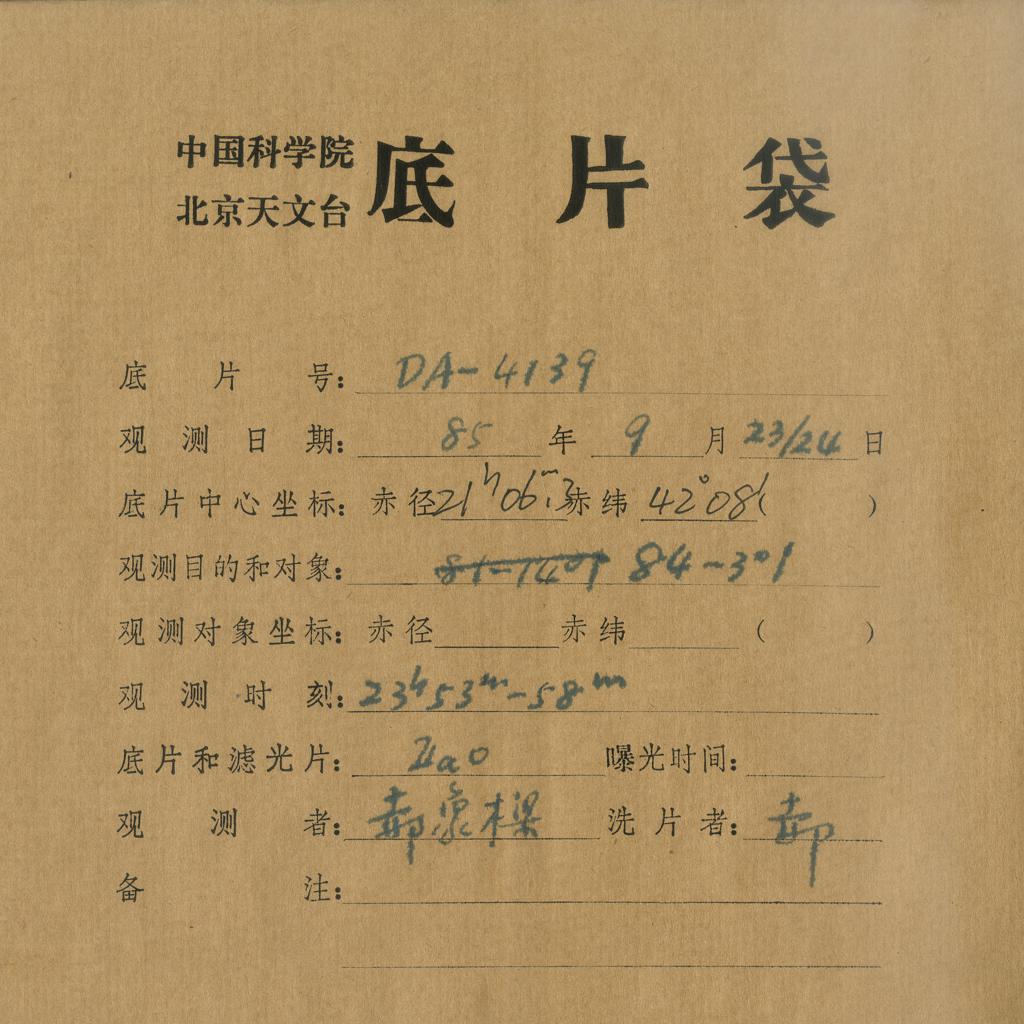 中国科学院
北京天文台
底片袋
底片号：DA-4139
观测日期：85年9月23/24日
底片中心坐标：赤径21ʰ06ᵐ.3赤纬42°08′（ ）
观测目的和对象：81-1401 84-301
观测对象坐标：赤径 赤纬 （ ）
观测时刻：23ʰ53ᵐ-58ᵐ
底片和滤光片：IIaO 曝光时间：
观测者：郝象樑 洗片者：郝
备注：